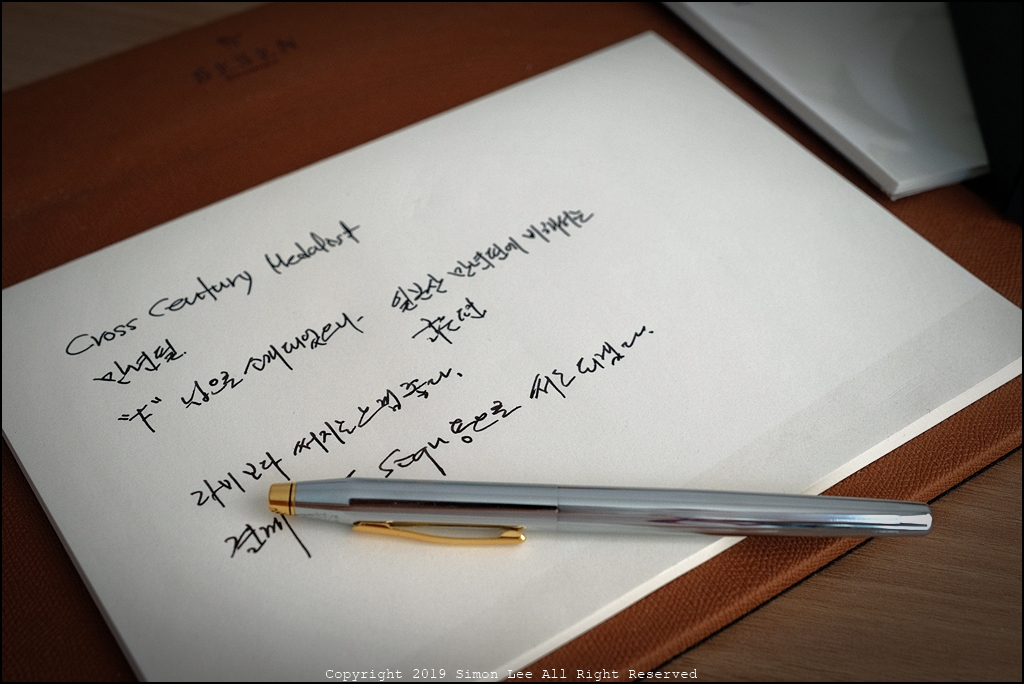 Cross Century Medalist
만년필.
"F" 닙으로 소개되었으나. 일본산 만년필에 비해서는
굵은편
라미보다 써지는 느낌 좋다.
결재 sign용으로 써도 되겠다.
Copyright 2019 Simon Lee All Right Reserved